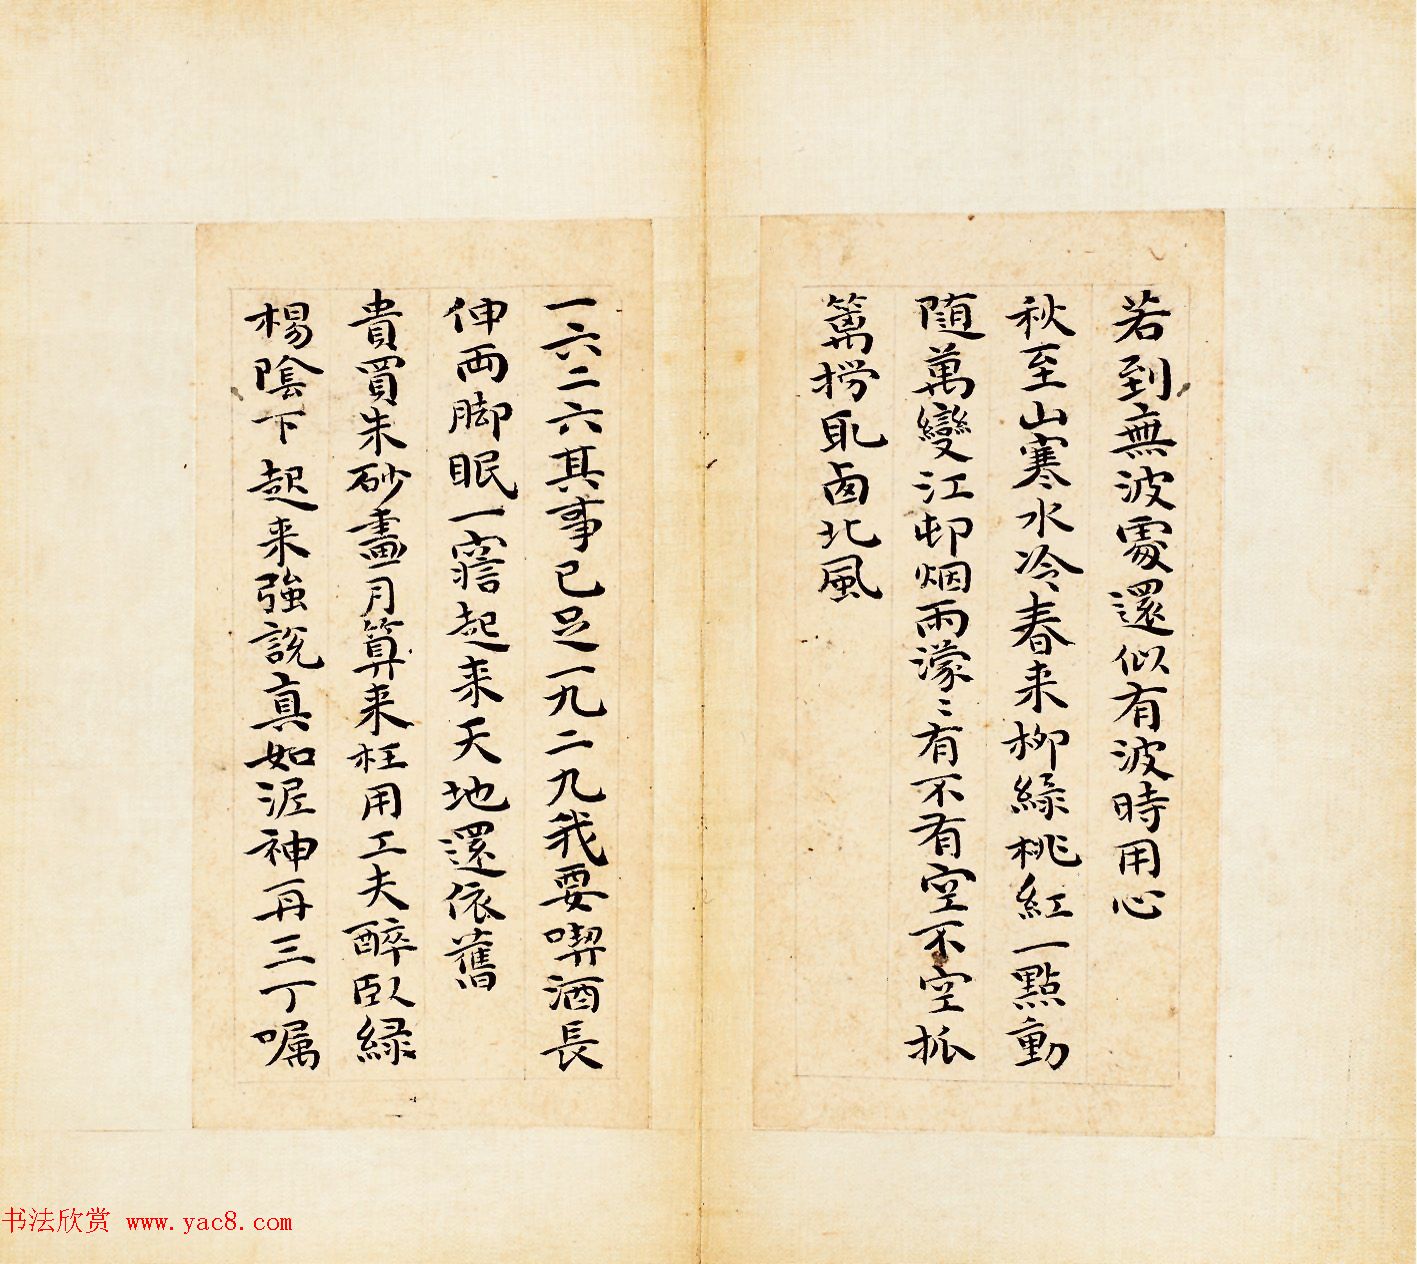 若到無波處還似有波時用心
秋至山寒水冷春来柳綠桃紅一點動
随萬變江邨烟雨濛〻有不有空不空抓
篱捞取西北風
一六二六其事已足一九二九我要喫酒長
伸両脚眠一寤起来天地還依舊
貴買朱砂畫月算来枉用工夫醉臥緑
楊陰下起来強說真如泥神再三丁嘱
书法欣赏 www.yac8.com